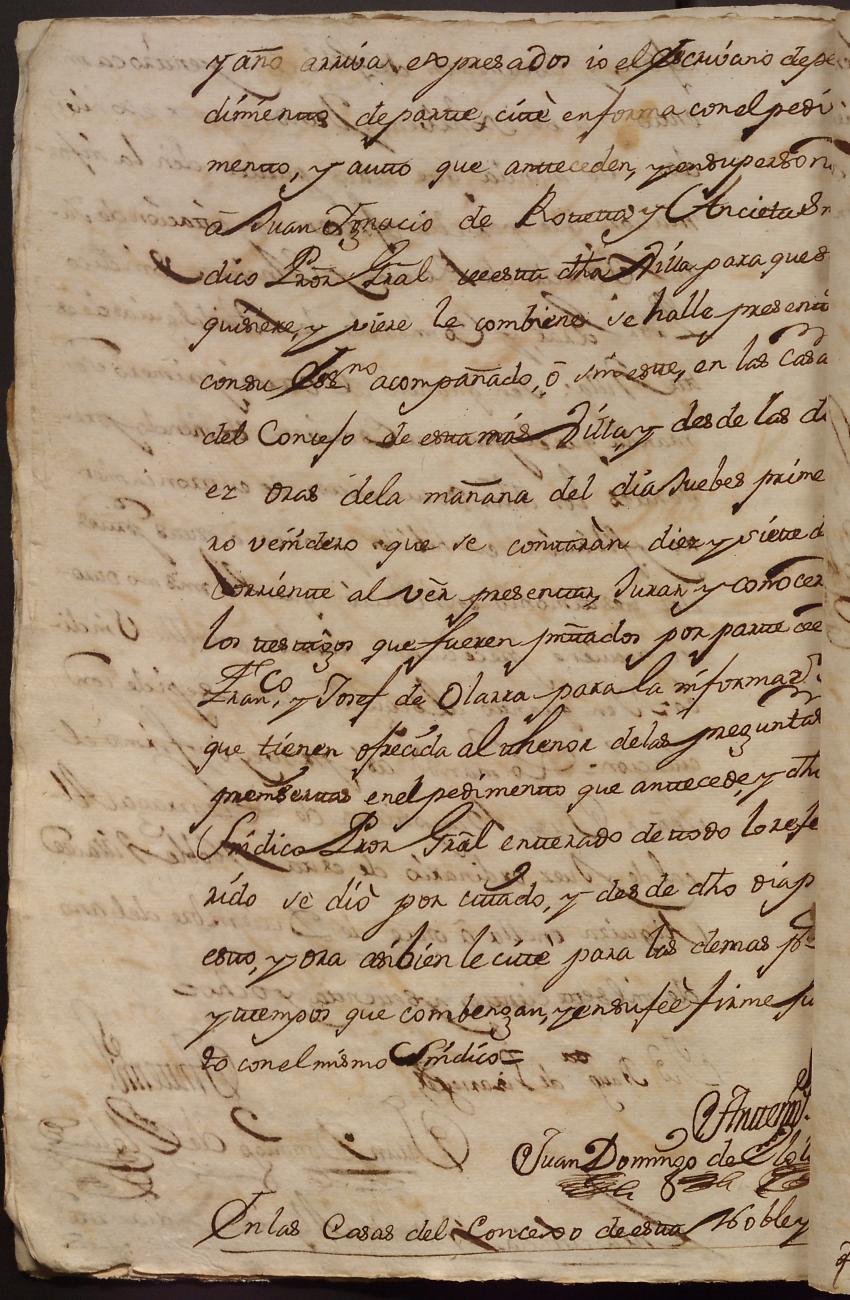 y año arriva, expresados io el Escrivano de pe
dimento de parte, cite en forma con el pedi
mento, y auto que anteceden, y en su person
â Juan Ignacio de Rotetta, y Ancieta Sin
dico Pror Gral de esta dha Villa para que s
quisiere, y viere le combiene se halle presente
con su Essno acompañado, ô sin este, en las Casa
del Concejo de esta más Villa, y desde las di
ez oras dela mañana del dia Juebes prime
ro venidero que se contaràn diez y siete d
Corriente al vèr presentar, Jurar y conocer
los testigos que fueren pntados por parte de
Franco, y Josef de Olarra para la informazn
que tienen ofrecida al thenor delas preguntas
preinsertas en el pedimento que antecede, y dho
Sindico Pror Gral enterado de todo lo refe
rido se diò por citado, y desde dho dia p
esto, y ora asibien le cite para las demas p
y tiempos que combengan, y en su feè firme ju
to con el mismo Sindico =
Antemi
Juan Domingo de
En las Casas del Concejo de esta Noble y